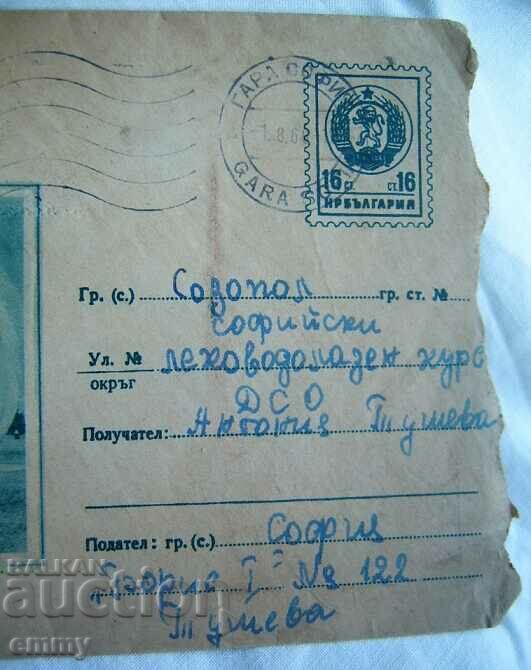 ГАРА СОФИЯ
1.8.6
GARA S
16 СТ. СТ. 16
НР БЪЛГАРИЯ
Гр. (с.) Созопол гр. ст. №
Софийски
Ул. № леководолазен курс
окръг ДСО
Получател: Антония Тушева
Подател: гр. (с.) София
№ 122
Тушева
BALKAN
auction
emmy